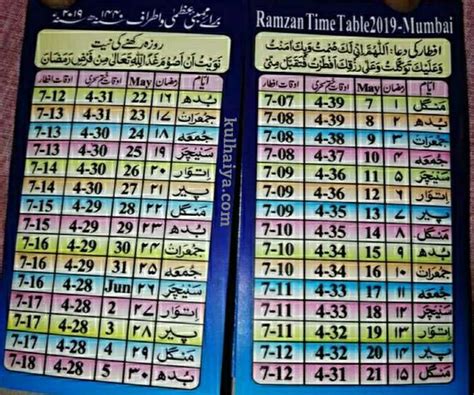 Ramzan TimeTable2019-Mumbai
افطار کی دعاء: اَللّٰهُمَّ اِنِّی لَکَ صُمْتُ وَبِکَ اٰمَنْتُ
وَعَلَیْکَ تَوَکَّلْتُ وَعَلٰی رِزْقِکَ اَفْطَرْتُ فَتَقَبَّلْ مِنِّی
ایام رمضان May اوقات ختم سحری اوقات افطار
منگل ۱ 7 4-39 7-07
بدھ ۲ 8 4-39 7-08
جمعرات ۳ 9 4-38 7-08
جمعہ ۴ 10 4-37 7-08
سنیچر ۵ 11 4-36 7-08
اتوار ۶ 12 4-36 7-09
پیر ۷ 13 4-35 7-09
منگل ۸ 14 4-35 7-09
بدھ ۹ 15 4-34 7-10
جمعرات ۱۰ 16 4-34 7-10
جمعہ ۱۱ 17 4-33 7-11
سنیچر ۱۲ 18 4-33 7-11
اتوار ۱۳ 19 4-32 7-11
پیر ۱۴ 20 4-32 7-11
منگل ۱۵ 21 4-31 7-12
برائے ممبئی عظمیٰ و اطراف ۱۴۴۰ھ ۲۰۱۹ء
روزہ رکھنے کی نیت
نَوَیْتُ اَنْ اَصُوْمَ غَدًا لِلّٰهِ تَعَالٰی مِنْ فَرْضِ رَمَضَانَ
ایام رمضان May اوقات ختم سحری اوقات افطار
بدھ ۱۶ 22 4-31 7-12
جمعرات ۱۷ 23 4-30 7-13
جمعہ ۱۸ 24 4-30 7-13
سنیچر ۱۹ 25 4-30 7-13
اتوار ۲۰ 26 4-30 7-14
پیر ۲۱ 27 4-30 7-14
منگل ۲۲ 28 4-29 7-15
بدھ ۲۳ 29 4-29 7-15
جمعرات ۲۴ 30 4-29 7-16
جمعہ ۲۵ 31 4-28 7-16
سنیچر ۲۶ Jun 4-28 7-16
اتوار ۲۷ 2 4-28 7-17
پیر ۲۸ 3 4-28 7-17
منگل ۲۹ 4 4-28 7-17
بدھ ۳۰ 5 4-28 7-18
kulhaiya.com